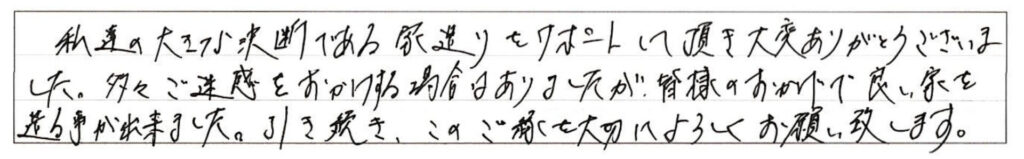 私達の大きな決断である家造りをサポートして頂き大変ありがとうございま
した。多々ご迷惑をおかけする場合はありましたが、皆様のおかげで良い家を
造る事が出来ました。引き続き、このご縁を大切によろしくお願い致します。